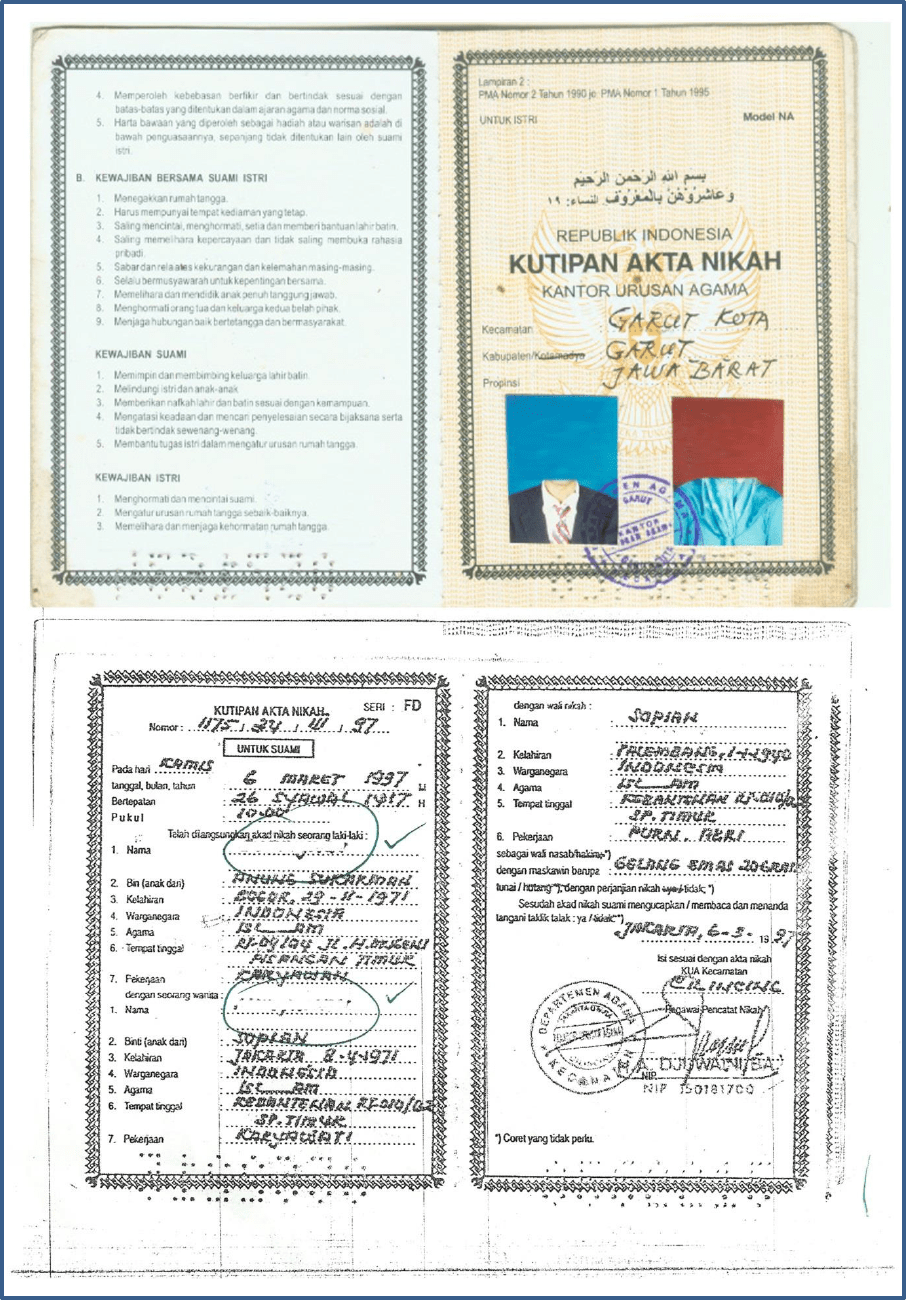 4. Memperoleh kebebasan berfikir dan bertindak sesuai dengan
batas-batas yang ditentukan dalam ajaran agama dan norma sosial.
5. Harta bawaan yang diperoleh sebagai hadiah atau warisan adalah di
bawah penguasaannya, sepanjang tidak ditentukan lain oleh suami
istri.
B. KEWAJIBAN BERSAMA SUAMI ISTRI
1. Menegakkan rumah tangga.
2. Harus mempunyai tempat kediaman yang tetap.
3. Saling mencintai, menghormati, setia dan memberi bantuan lahir batin.
4. Saling memelihara kepercayaan dan tidak saling membuka rahasia
pribadi.
5. Sabar dan rela ates kekurangan dan kelemahan masing-masing.
6. Selalu bermusyawarah untuk kepentingan bersama.
7. Memelihara dan mendidik anak penuh tanggung jawab.
8. Menghormati orang tua dan keluarga kedua belah pihak.
9. Menjaga hubungan baik bertetangga dan bermasyarakat.
KEWAJIBAN SUAMI
1. Memimpin dan membimbing keluarga lahir batin.
2. Melindungi istri dan anak-anak
3. Memberikan nafkah lahir dan batin sesuai dengan kemampuan.
4. Mengatasi keadaan dan mencari penyelesaian secara bijaksana serta
tidak bertindak sewenang-wenang.
5. Membantu tugas istri dalam mengatur urusan rumah tangga.
KEWAJIBAN ISTRI
1. Menghormati dan mencintai suami.
2. Mengatur urusan rumah tangga sebaik-baiknya.
3. Memelihara dan menjaga kehormatan rumah tangga.
Lampiran 2 :
PMA Nomor 2 Tahun 1990 jo. PMA Nomor 1 Tahun 1995
UNTUK ISTRI Model NA
بسم الله الرحمن الرحيم
وعاشروهن بالمعروف النساء: ١٩
REPUBLIK INDONESIA
KUTIPAN AKTA NIKAH
KANTOR URUSAN AGAMA
Kecamatan GARUT KOTA
Kabupaten/Kotamadya GARUT
Propinsi JAWA BARAT
KUTIPAN AKTA NIKAH SERI : FD
Nomor : 1175 / 24 / III / 97
UNTUK SUAMI
Pada hari KAMIS
tanggal, bulan, tahun 6 MARET 1997 M
Bertepatan 26 SYAWAL 1417 H
Pukul 10.00
Telah dilangsungkan akad nikah seorang laki-laki :
1. Nama
2. Bin (anak dari) ANUNG SUKARMAN
3. Kelahiran BOGOR, 29-11-1971
4. Warganegara INDONESIA
5. Agama ISLAM
6. Tempat tinggal RT-04/04 JL. H.
TIMUR
7. Pekerjaan KARYAWAN
dengan seorang wanita :
1. Nama
2. Binti (anak dari) SOPIAN
3. Kelahiran JAKARTA 8-4-1971
4. Warganegara INDONESIA
5. Agama ISLAM
6. Tempat tinggal KEBANTENAN RT-010/02
SP. TIMUR
7. Pekerjaan KARYAWATI
dengan wali nikah :
1. Nama SOPIAN
2. Kelahiran PALEMBANG, 1-1-1940
3. Warganegara INDONESIA
4. Agama ISLAM
5. Tempat tinggal KEBANTENAN RT-010/02
SP. TIMUR
6. Pekerjaan PURN. ABRI
sebagai wali nasab/hakim *)
dengan maskawin berupa : GELANG EMAS 20 GRAM
tunai / hutang *), dengan perjanjian nikah ya / tidak; *)
Sesudah akad nikah suami mengucapkan / membaca dan menanda
tangani taklik talak : ya / tidak *)
JAKARTA, 6-3- 1997
Isi sesuai dengan akta nikah
KUA Kecamatan
CILINCING
Pegawai Pencatat Nikah
DEPARTEMEN AGAMA
KECAMATAN
H.A. DJUWAINI, BA
NIP 150181700
*) Coret yang tidak perlu.